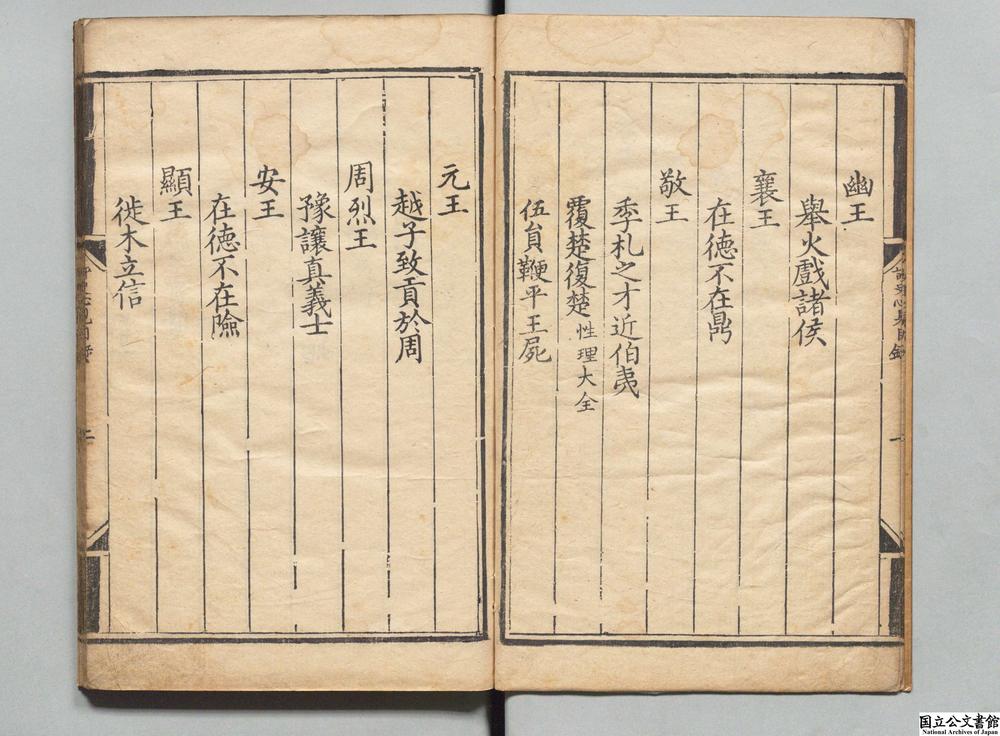 幽王
舉火戲諸侯
襄王
在德不在鼎
敬王
季札之才近伯夷
覆楚復楚 性理大全
伍員鞭平王屍
元王
越子致貢於周
周烈王
豫讓真義士
安王
在德不在險
顯王
徙木立信
国立公文書館
National Archives of Japan